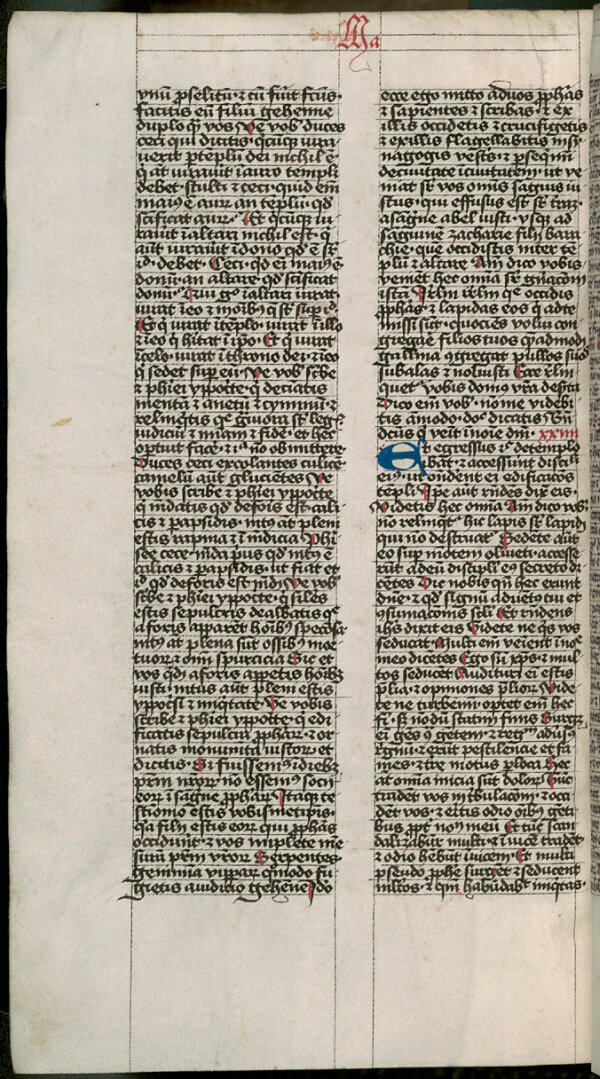 Ma
vnū p̄selitū· ⁊ cū fūit fc̄us·
facitis eū filiū gehenne
duplo q̄ vos Ve vob̄ duces
ceci qui dicitis· qͥcūqꝫ iura-
uerit ꝑ templū dei nichil ē·
qͥ āt iurauit ī auro templi
debet· Stulti ⁊ ceci· quid em̄
maiꝰ ē aurū an templū· qd̄
sc̄ificat aurū· Et qͥcūqꝫ iu-
rauit ī altari nichil est· qͥ
aūt iurauit ī dono qd̄ ē sr̄
id̄· debet· Ceci· qd̄ em̄ maiꝰ ē
donū· an altare qd̄ sc̄ificat
donū· Qui gͦ ī altari iurat·
iurat ī eo ⁊ ī oībꝰ q̄ sr̄ suꝑ id̄·
Et qͥ iurat ī tēplo· iurat ī illo
⁊ ī eo qͥ hitat ī ip̄o· Et qͥ iurat
ī celo· iurat ī throno dei· ⁊ ī eo
qͥ sedet suꝑ eū· Ve vob̄ sc̄be
⁊ phīei ypp̄ote· qͥ decīatis
mentā ⁊ anetū ⁊ cymmū· ⁊
relinqͥtis que gͣuiora sr̄ leḡ·
iudiciū ⁊ mīam ⁊ fidē· et hec
optuit facē· ⁊ illa nō obmittere
Duces ceci excolantes culicē
camelū aūt glucientes Ve
vobis scribe ⁊ phīei ypp̄ote
qͥ mūdatis qd̄ defois est cali-
cis ⁊ papsidis· intꝰ āt pleni
estis rapina ⁊ īmūdicia Phī
see cece· mūda pͥus qd̄ intꝰ ē
calicis ⁊ papsidis· ut fiat et
id̄ qd̄ deforis est mūdū Ve vob̄
sc̄be ⁊ phīei ypp̄ote· qͥ sil̄es
estis sepulcris dealbatis q̄
a foris apparēt hoībꝰ speciosa
intꝰ āt plena sūt ossibꝰ mor-
tuorū ⁊ om̄i spurcicia Sic et
vos qͥdē afoīs appetis hoībꝰ
iusti· intus aūt pleni estis
yppocrisi ⁊ iniqͥtate· Ve vobis
scribe ⁊ phīei ypp̄ote· qͥ edi-
ficatis sepulcra ꝓpharū· ⁊ or-
natis monumēta iustorū et
dicitis· Si fuissemꝰ ī diebꝰ
pr̄m nr̄orū nō essemꝰ socii
eorū ī sāgne ꝓpharū Itaqꝫ te-
stīonio estis vobismetipis·
qͥa filij estis eorū qui ꝓphās
occidūnt· ⁊ vos implete mē-
surā pr̄m vr̄orū Serpentes·
gemmīa vipparū qͦmodo fu-
gietis a iudicio gehene Ido
ecce ego mitto ad vos ꝓphās
⁊ sapientes ⁊ scribas· ⁊ ex
illis occidetis ⁊ crucifigetis
⁊ ex illis flagellabitis in sy-
nagogis vestīs· ⁊ ꝑseqm̄i
de ciuitate ī ciuitatem· ut ve-
niat sr̄ vos omīs sanguis iu-
stus· qui effusus est sr̄ trā·
a sāgne abel iusti· vsqꝫ ad
sagunē zacharie filij bara-
chie· que occidistis inter tē-
plū ⁊ altare Am̄ dico vobis·
venient hec omnia sr̄ gn̄acōem
istā Ierlm̄ ierlm̄ qͥ occidis
ꝓphās· ⁊ lapidas eos qͥ ad te
missi sūt· quociēs volui con-
gregāe filios tuos qͥadmodū
gallina ꝯgregat pullos suos
sub alas ⁊ noluisti Ecce rīlin-
quet̄ vobis domꝰ vr̄a des̄ta
Dico em̄ vob̄· nō me videbi-
tis amodo· doc̄ dicatis Bn̄-
dcūs qͥ veīt ī noīe dn̄i· xxiiii
Et egressus ih̄c de templo
ibat· ⁊ accessunt disciꝉi
eiꝰ· ut ostendent ei edificacōes
tēpli Ip̄e aūt rn̄dēs dix̄ eis·
Videtis hec omnia Am̄ dico vob̄
nō relinqͥt̄ hic lapis sr̄ lapidē
qui nō destruat̄ Sedete aūt
eo suꝑ mōtem oliueti· accesse-
rūt ad eū discipli eiꝰ secreto di-
cētes Dic nobis qn̄ hec erunt
dn̄e· ⁊ qd̄ signū aduētꝰ tui et
ꝯsumacōnis sc̄li Et rn̄dens
ih̄s dixit eis Videte ne qͥs vos
seducat· Multi em̄ veīent ī noīe
meo dicētes Ego sū xp̄s· ⁊ mul-
tos seducēt Audituri em̄ estis
plīa· ⁊ opiniones pl̄iorū Vide-
te ne turbem̄i· optet em̄ hec
fīi· sꝫ nōdū statim finis Surgꝫ
em̄ gēs ꝯ gētem· ⁊ regͫ aduꝰ
rgnū· ⁊ erūt pestilencie et fa-
mes· ⁊ tre motus ꝑ loca Hec
āt omīa inicia sūt dolorū Tūc
tradēt vos ī tribulacōem· ⁊ occi-
dēt vos· ⁊ eritis odio oībꝰ gēti-
bus ꝓpt̄ nom̄ meū Et tūc scan-
dalizabūt̄ multi· ⁊ īuicē tradēt
⁊ odio hēbūt īuicem· Et multi
pseudo ꝓphe surgēt ⁊ seducent
mltos· ⁊ qm̄ habūdab̄t iniqͥtas·